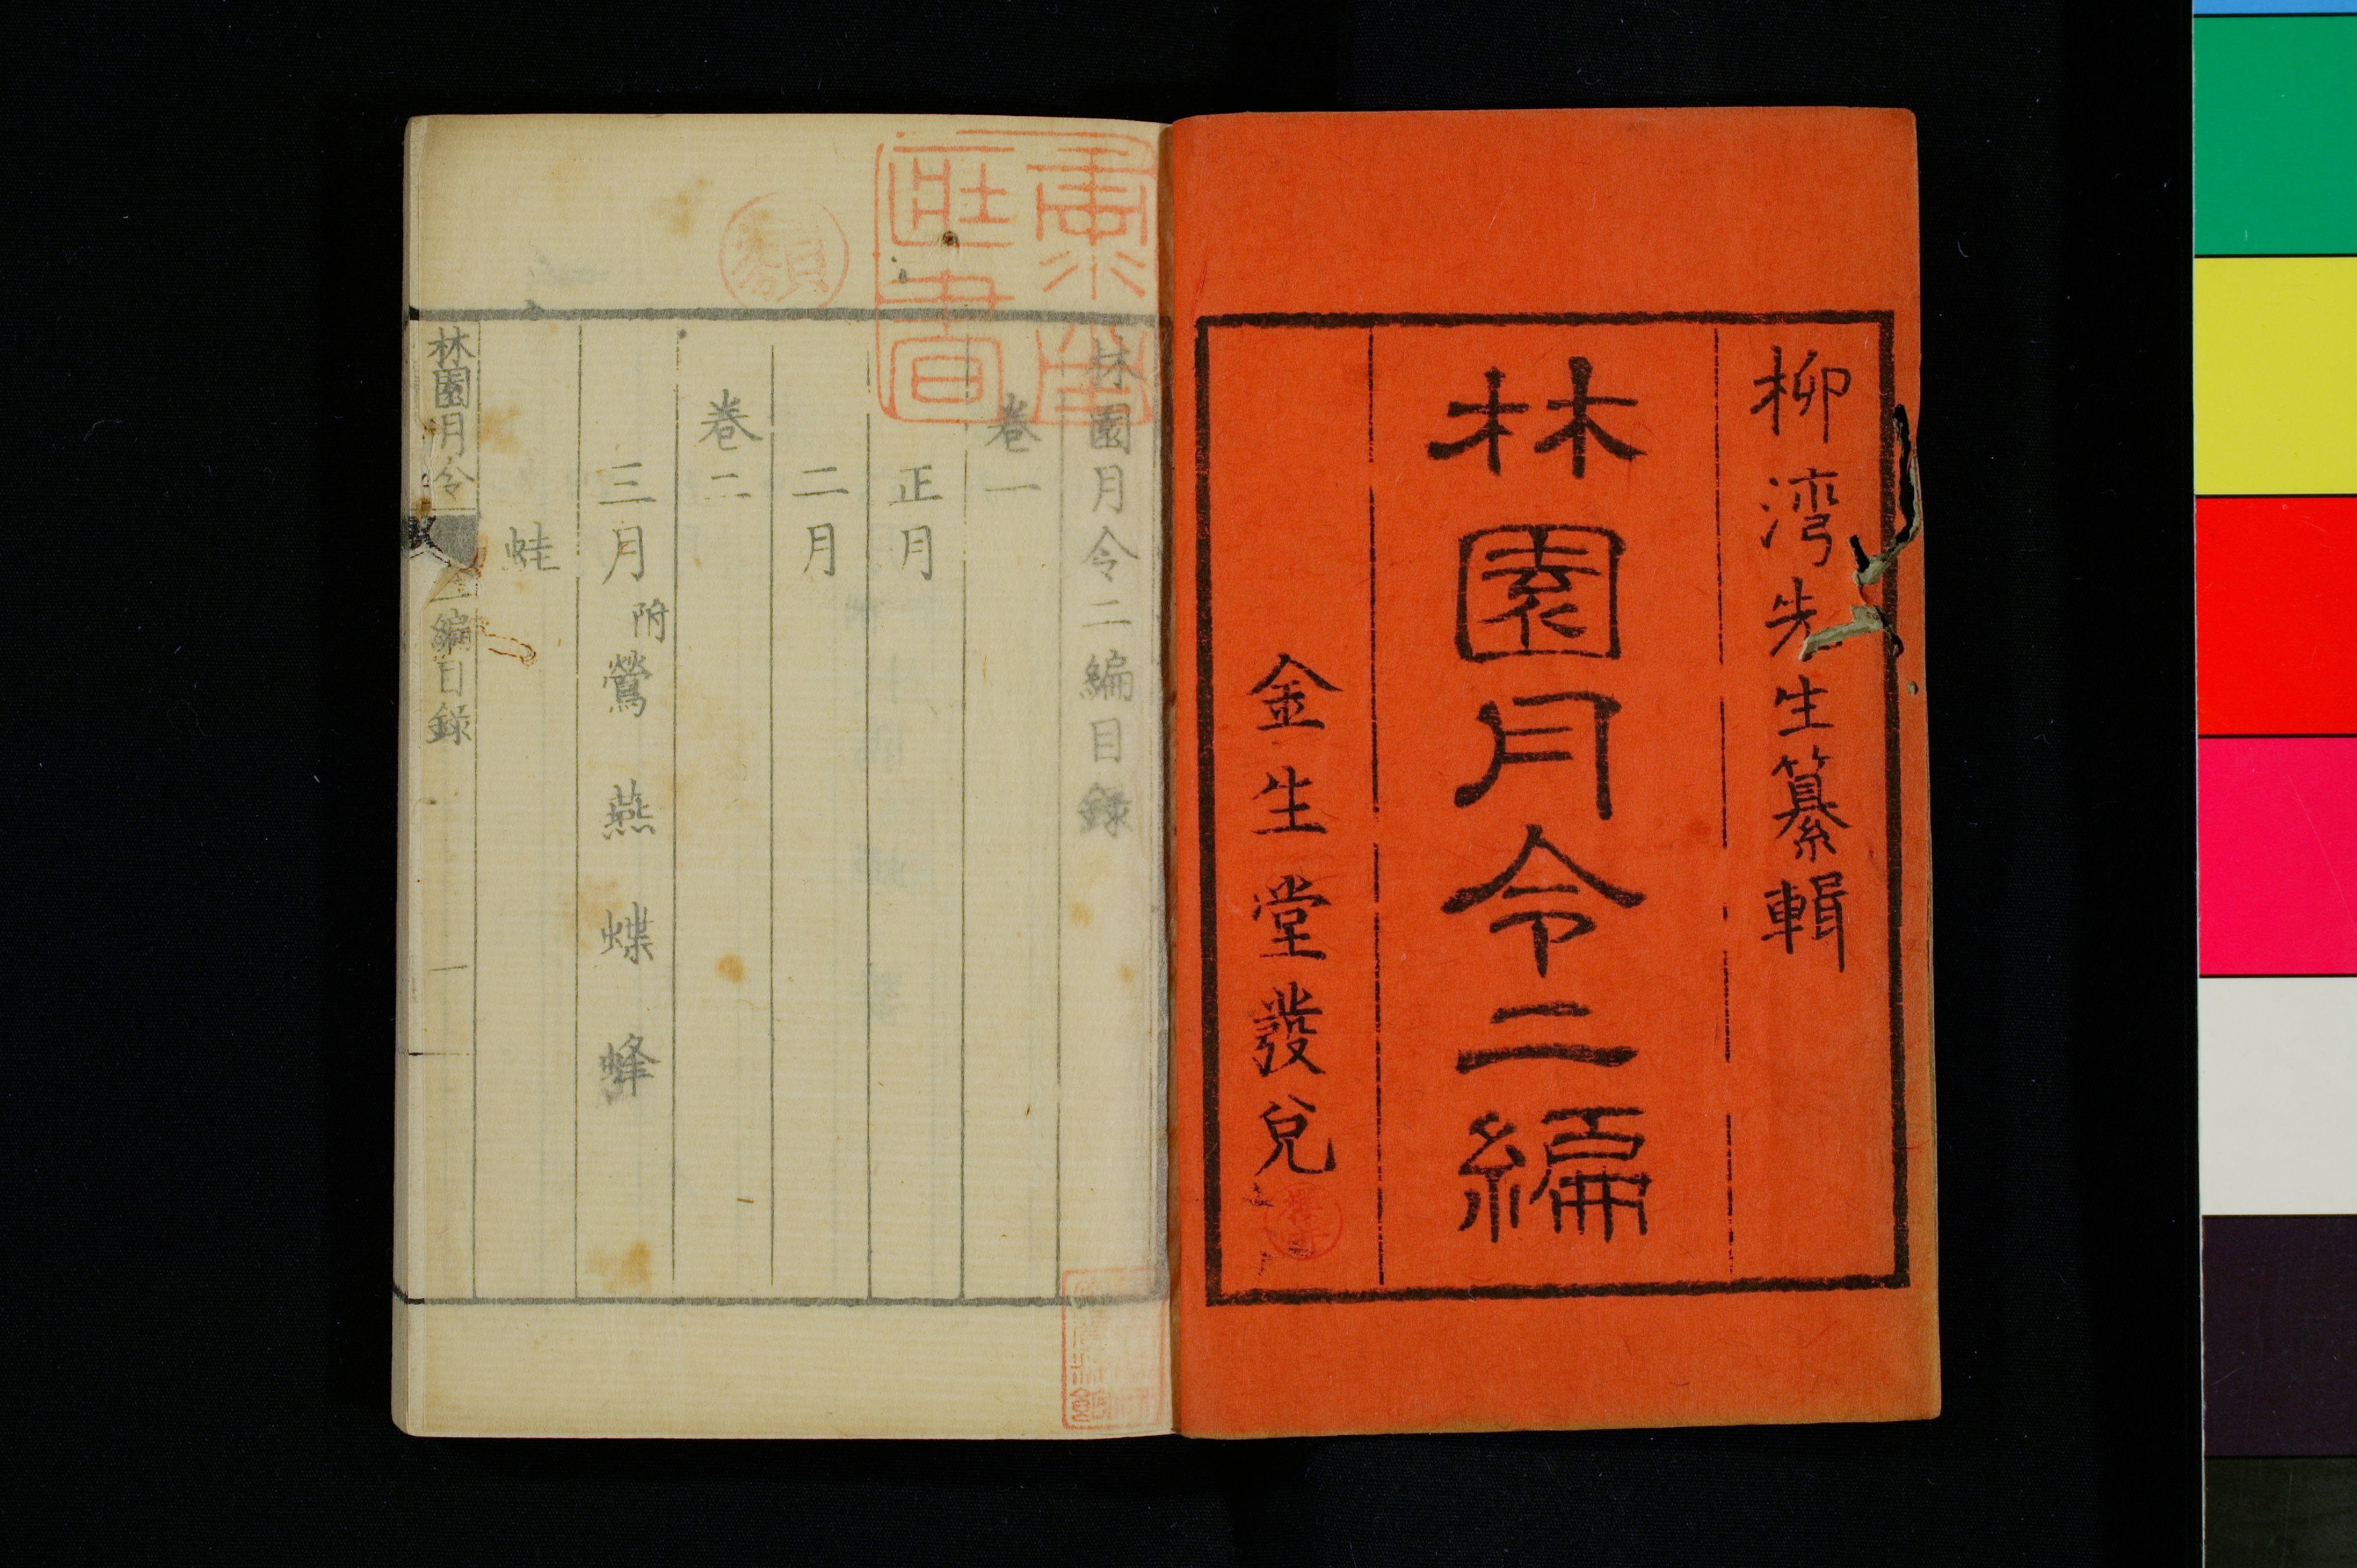 柳湾先生纂輯
林園月令二編
金生堂發兌
林園月令二編目録
巻一
正月
二月
巻二
三月附鶯燕蝶蜂
蛙
林園月令
二編目録
一